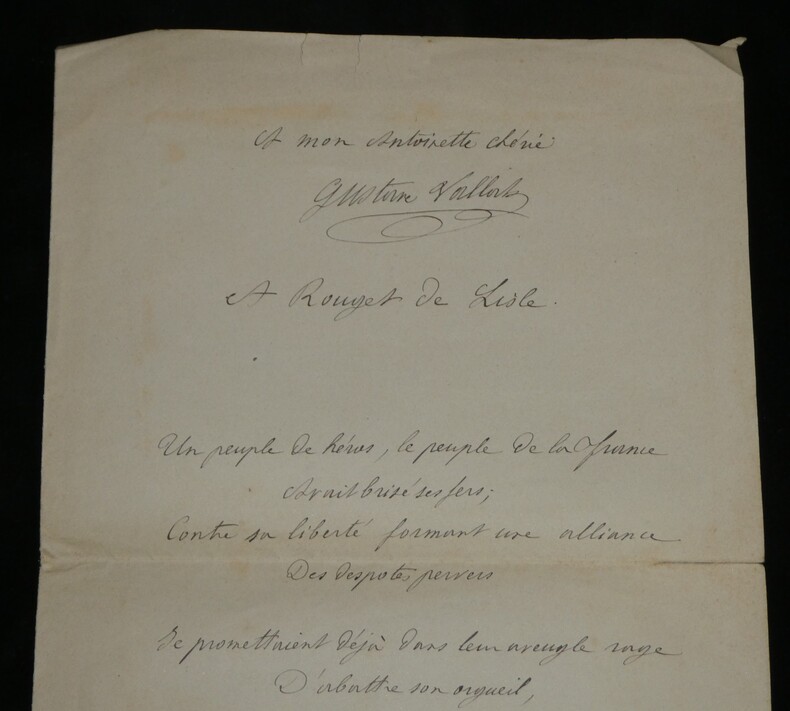 A mon Antoinette chérie
Gustave
A Rouget de Lisle.
Un peuple de héros, le peuple de la france
Avait brisé ses fers;
Contre sa liberté formant une alliance
Des despotes pervers
Se promettaient déjà dans leur aveugle rage
D'abattre son orgueil,